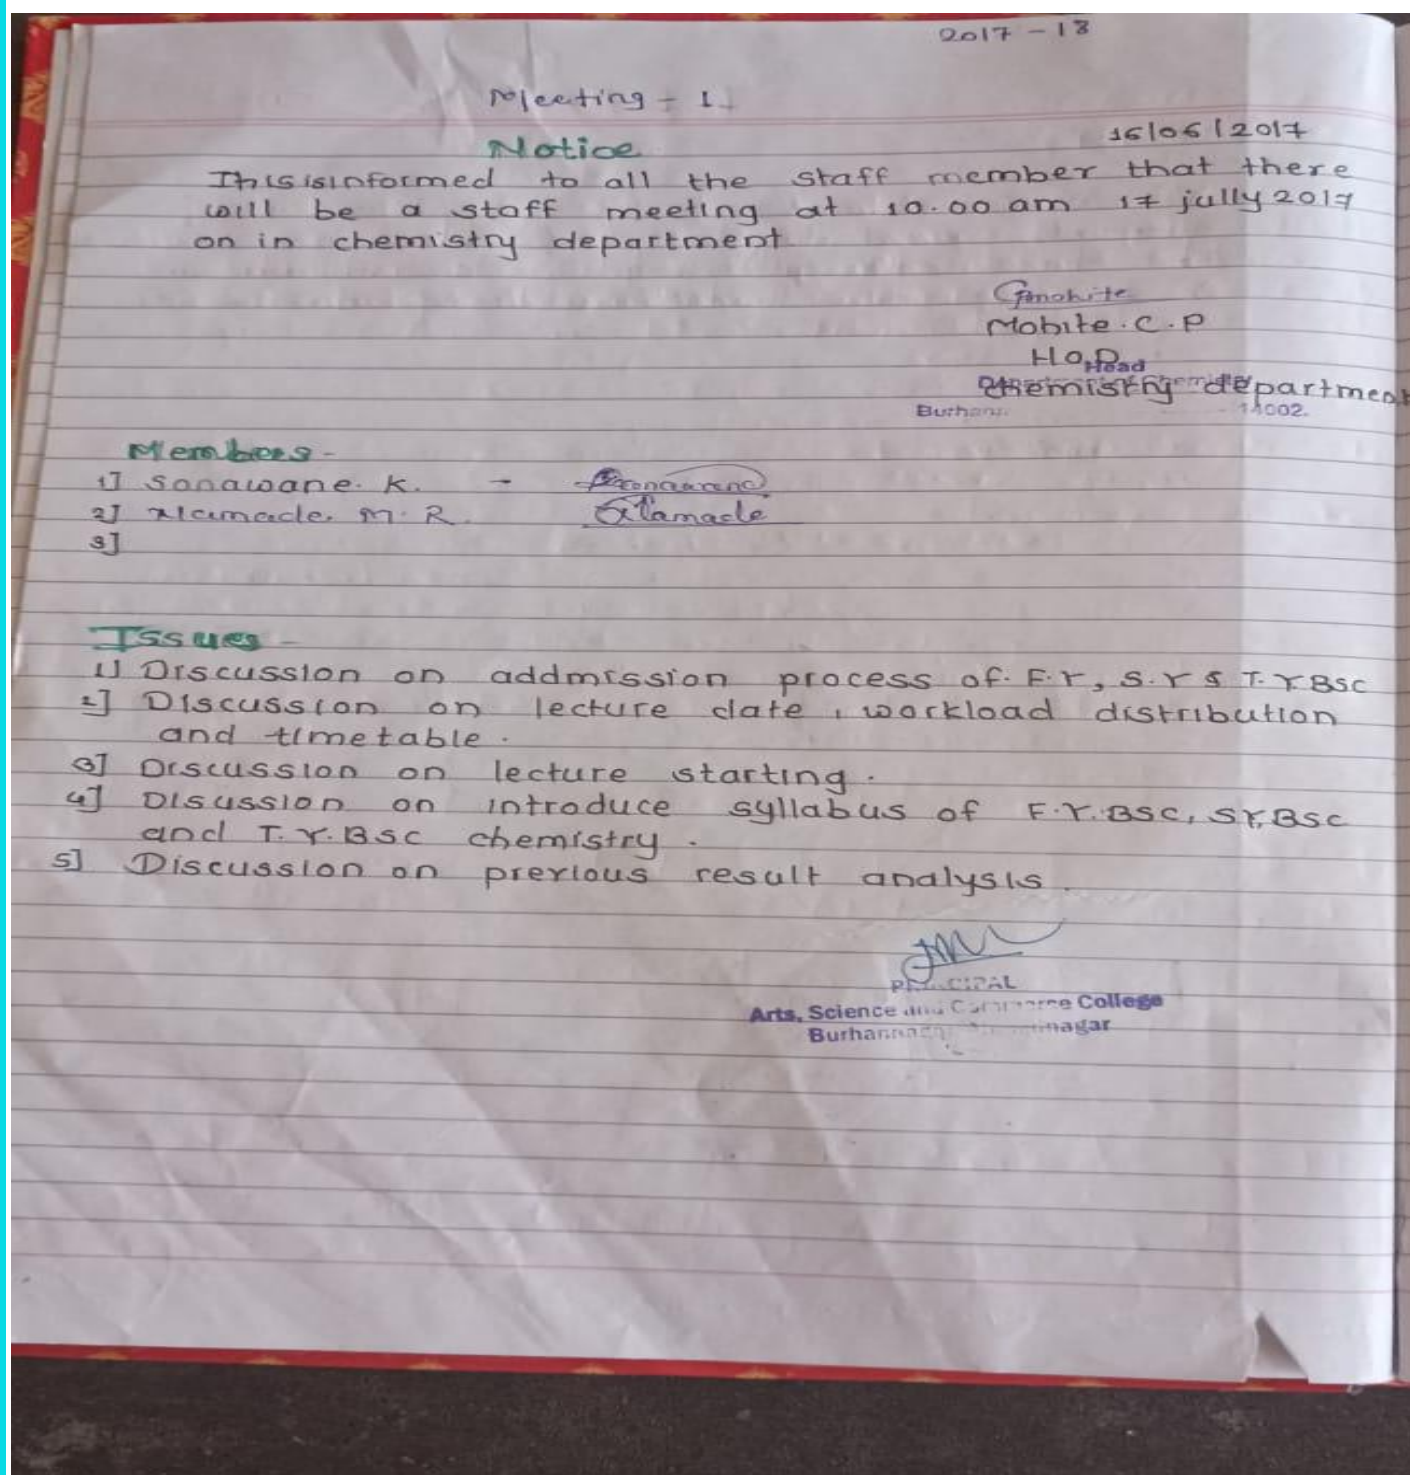 2017-18
Meeting - 1
Notice
16/06/2017
This is informed to all the staff member that there
will be a staff meeting at 10.00 am 17 jully 2017
on in chemistry department
Mohite
Mohite. C. P
H O D
Head
Chemistry department
Burhan
14002.
Members -
1] Sonawane. K. - Sonawane
2] Namade. M. R. Namade
3]
Issues -
1] Discussion on addmission process of. F.Y, S.Y & T.Y BSC
2] Discussion on lecture date, workload distribution
and timetable.
3] Discussion on lecture starting.
4] Disussion on introduce syllabus of F.Y.BSC, SY.BSC
and T.Y.BSC chemistry.
5] Discussion on previous result analysis.
PRINCIPAL
Arts, Science and Commerce College